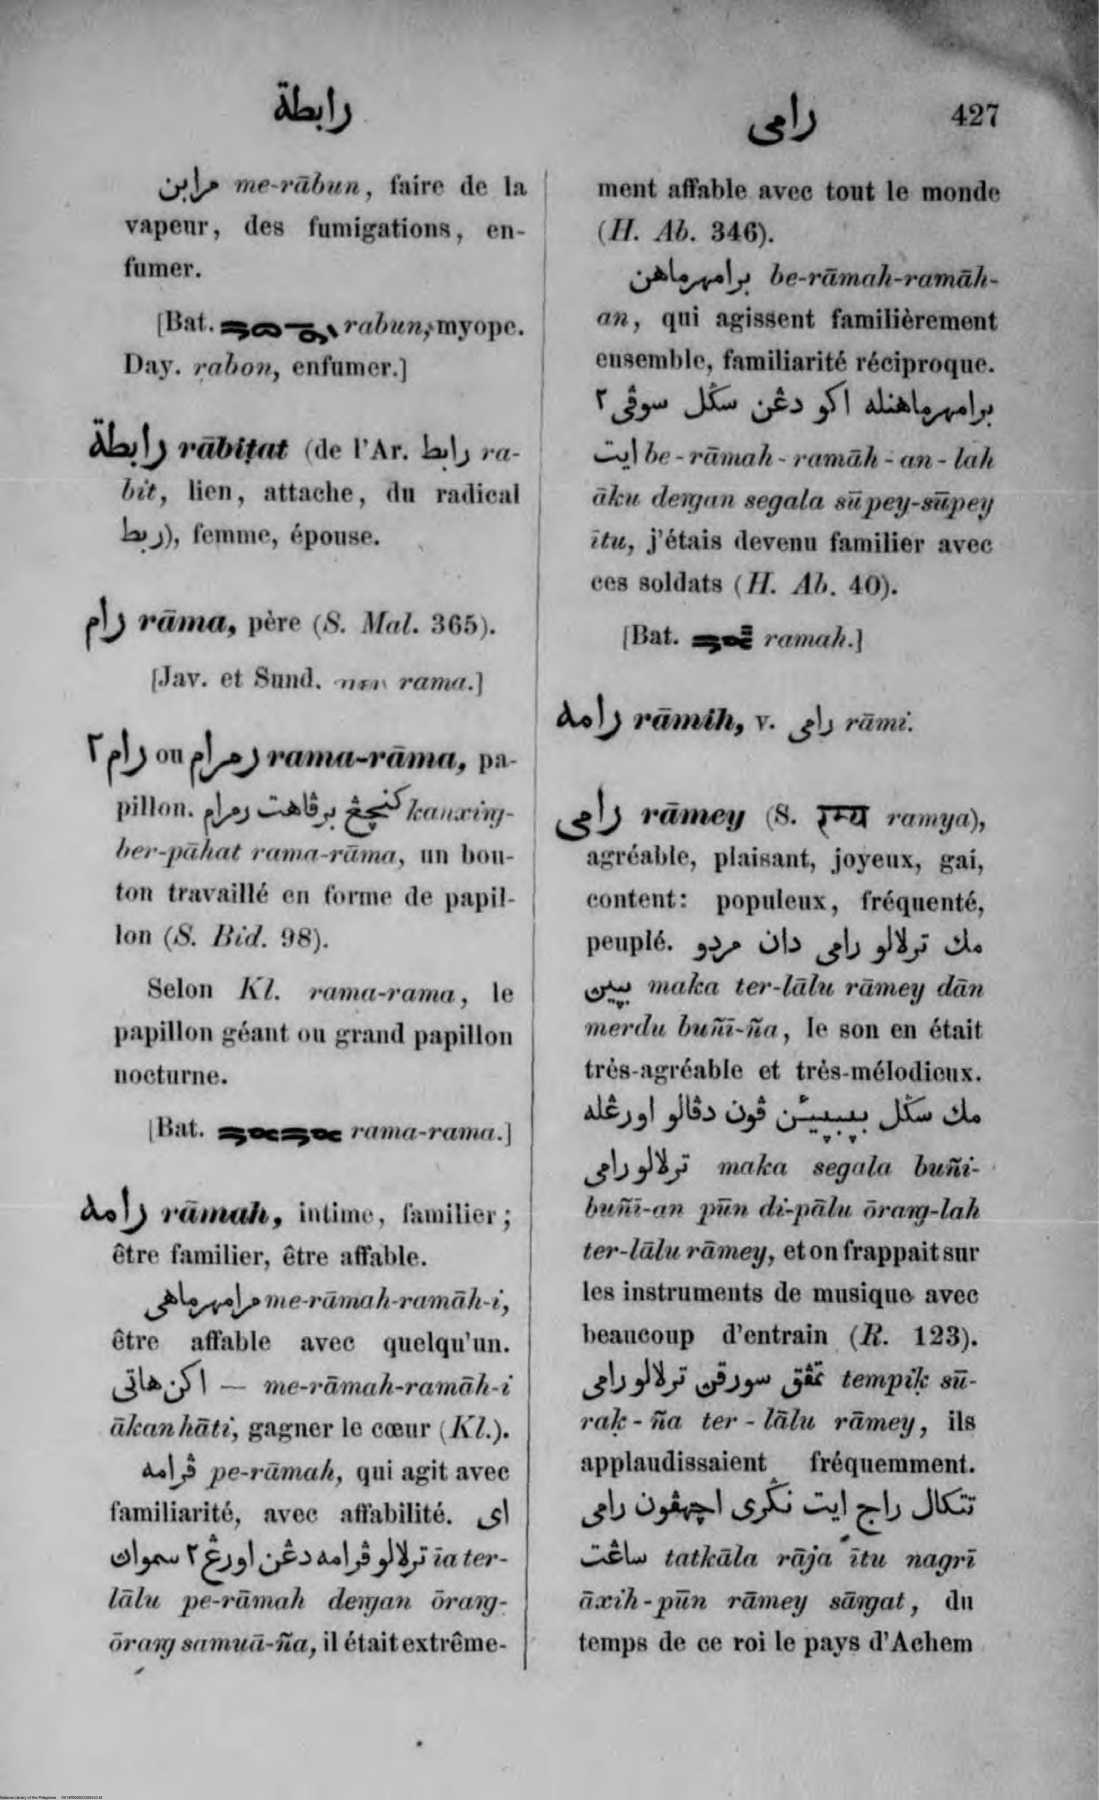 رابطة
رامى
427
مرابن me-rābun, faire de la
vapeur, des fumigations, en-
fumer.
[Bat. rabun, myope.
Day. rabon, enfumer.]
رابطة rābiṭat (de l'Ar. رابط ra-
bit, lien, attache, du radical
ربط), femme, épouse.
رام rāma, père (S. Mal. 365).
[Jav. et Sund. rama.]
رام ٢ ou رمرام rama-rāma, pa-
pillon. كنچڠ برڤاهت رمرام kanxing-
ber-pāhat rama-rāma, un bou-
ton travaillé en forme de papil-
lon (S. Bid. 98).
Selon Kl. rama-rama, le
papillon géant ou grand papillon
nocturne.
[Bat. rama-rama.]
رامه rāmah, intime, familier;
être familier, être affable.
مرامهرماهى me-rāmah-ramāh-i,
être affable avec quelqu'un.
اكن هاتى — me-rāmah-ramāh-i
ākan hāti, gagner le cœur (Kl.).
ڤرامه pe-rāmah, qui agit avec
familiarité, avec affabilité. اى
ترلالو ڤرامه دڠن اورڠ ٢ سموان īa ter-
lālu pe-rāmah deṅgan ōraṅg-
ōraṅg samuā-ña, il était extrême-
ment affable avec tout le monde
(H. Ab. 346).
برامهرماهن be-rāmah-ramāh-
an, qui agissent familièrement
ensemble, familiarité réciproque.
برامهرماهنله اكو دڠن سڬل سوڤى ٢
ايت be-rāmah-ramāh-an-lah
āku deṅgan segala sūpey-sūpey
ītu, j'étais devenu familier avec
ces soldats (H. Ab. 40).
[Bat. ramah.]
رامه rāmih, v. رامى rāmi.
رامى rāmey (S. रम्य ramya),
agréable, plaisant, joyeux, gai,
content: populeux, fréquenté,
peuplé. مك ترلالو رامى دان مردو
maka ter-lālu rāmey dān
merdu buñī-ña, le son en était
très-agréable et très-mélodieux.
مك سڬل ڤون دڤالو اورڠله
ترلالو رامى maka segala buñi-
buñī-an pūn di-pālu ōraṅg-lah
ter-lālu rāmey, et on frappait sur
les instruments de musique avec
beaucoup d'entrain (R. 123).
تمڤق سورقن ترلالو رامى tempiḳ sū-
raḳ-ña ter-lālu rāmey, ils
applaudissaient fréquemment.
تتكال راج ايت نڬرى اچهڤون رامى
ساڠت tatkāla rāja ītu nagrī
āxih-pūn rāmey sāṅgat, du
temps de ce roi le pays d'Achem